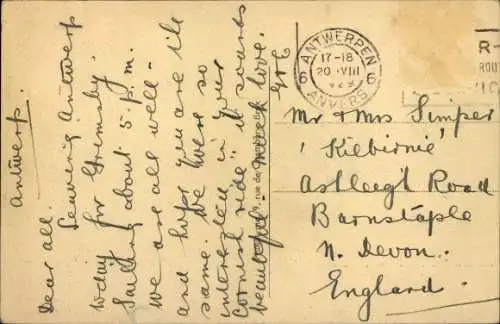 Antwerp.
Dear all.
Leaving Antwerp
today for Grimsby.
Sailing about 5 p.m.
We are all well-
and hope you are the
same. We were so
interested in your
Cornish ride" it sounds
beautiful. Much love.
ANTWERPEN
17-18
20 VIII
6 6
ANVERS
R
ROUT
Mr & Mrs Simper
'Kilbirnie'
Ashleigh Road
Barnstaple
N. Devon.
England.
rue de